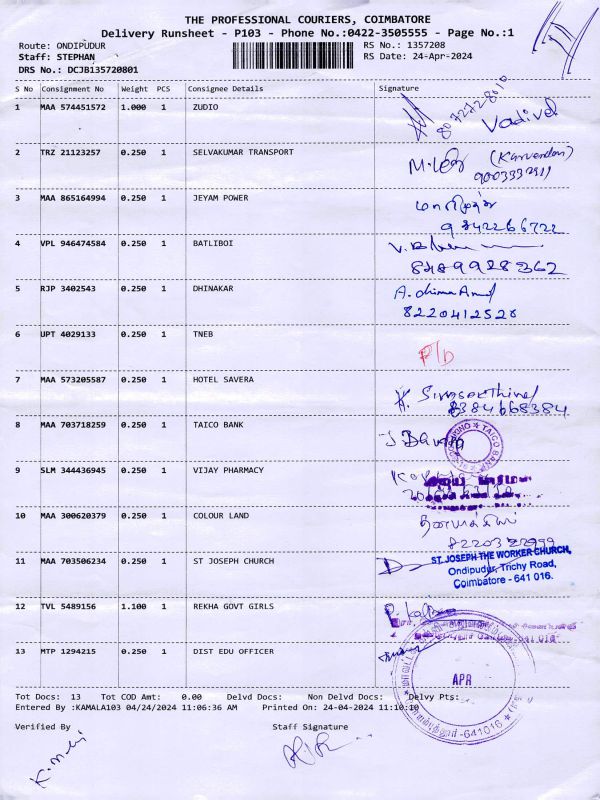 THE PROFESSIONAL COURIERS, COIMBATORE
Delivery Runsheet - P103 - Phone No.:0422-3505555 - Page No.:1
Route: ONDIPUDUR RS No.: 1357208
Staff: STEPHAN RS Date: 24-Apr-2024
DRS No.: DCJB135720801
S No Consignment No Weight PCS Consignee Details Signature
1 MAA 574451572 1.000 1 ZUDIO
Vadivel
2 TRZ 21123257 0.250 1 SELVAKUMAR TRANSPORT
3 MAA 865164994 0.250 1 JEYAM POWER
9842266722
4 VPL 946474584 0.250 1 BATLIBOI
8489928362
5 RJP 3402543 0.250 1 DHINAKAR
8220412528
6 UPT 4029133 0.250 1 TNEB
P/D
7 MAA 573205587 0.250 1 HOTEL SAVERA
8384668384
8 MAA 703718259 0.250 1 TAICO BANK
TAICO BANK
9 SLM 344436945 0.250 1 VIJAY PHARMACY
10 MAA 300620379 0.250 1 COLOUR LAND
11 MAA 703506234 0.250 1 ST JOSEPH CHURCH
ST. JOSEPH THE WORKER CHURCH,
Ondipudur, Trichy Road,
Coimbatore - 641 016.
12 TVL 5489156 1.100 1 REKHA GOVT GIRLS
13 MTP 1294215 0.250 1 DIST EDU OFFICER
APR
-641016
Tot Docs: 13 Tot COD Amt: 0.00 Delvd Docs: Non Delvd Docs: Delvy Pts:
Entered By :KAMALA103 04/24/2024 11:06:36 AM Printed On: 24-04-2024 11:10:10
Verified By Staff Signature